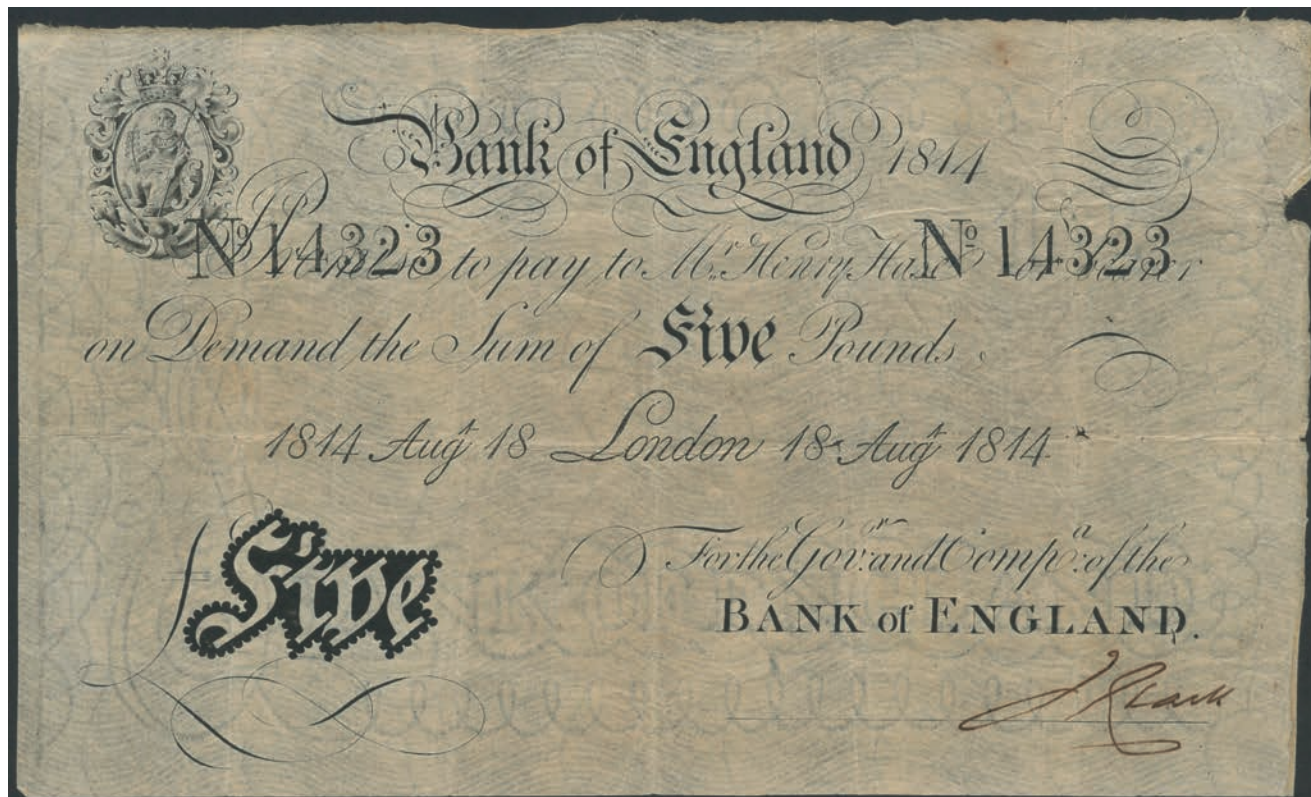 Bank of England 1814
Nº 14323 Nº 14323
I Promise to pay to Mr. Henry Hase or Bearer
on Demand the Sum of Five Pounds
1814 Augt 18 London 18 Augt 1814
£ Five
For the Govr. and Compa. of the
BANK of ENGLAND.